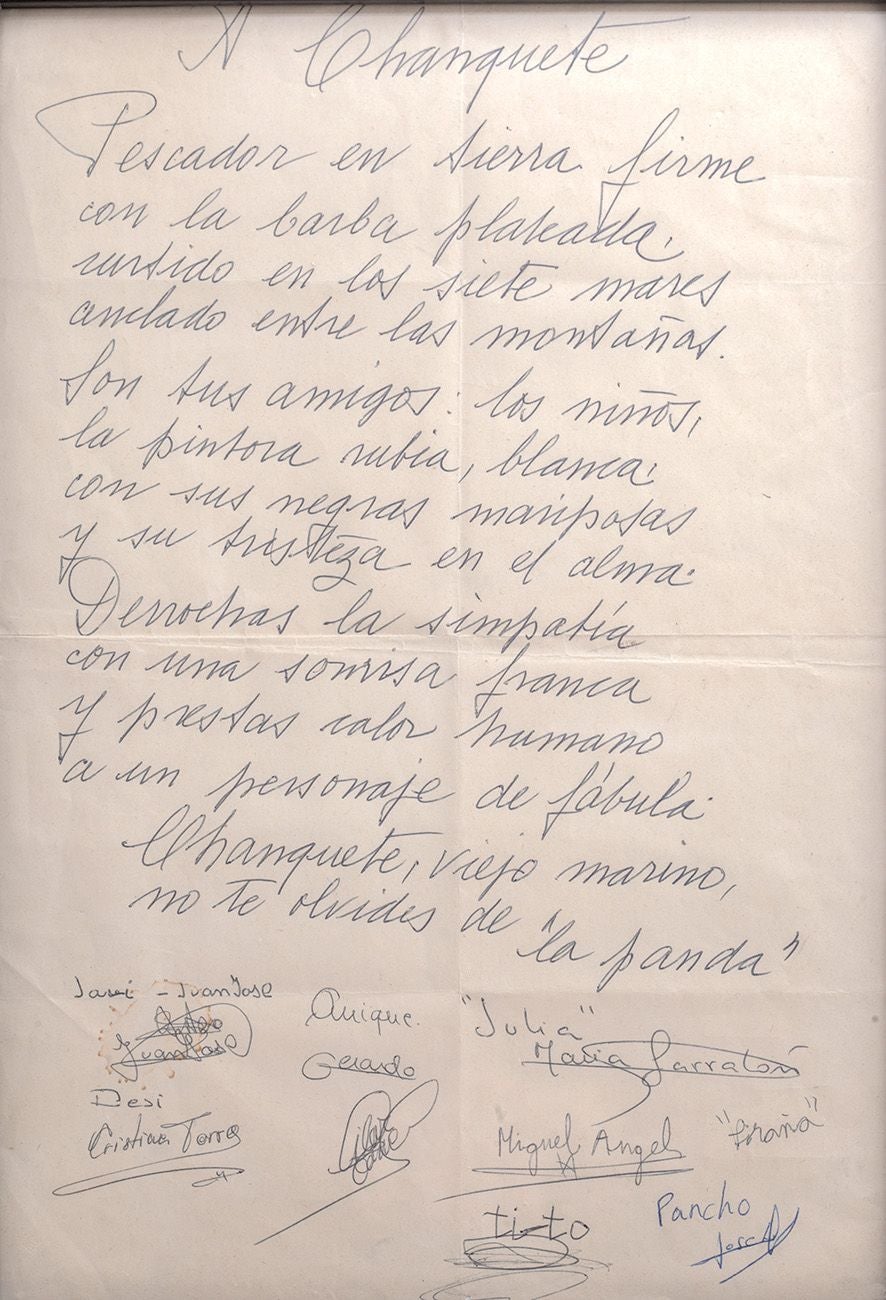 A Chanquete
Pescador en tierra firme
con la barba plateada,
curtido en los siete mares
anclado entre las montañas.
Son tus amigos: los niños,
la pintora rubia, blanca,
con sus negras mariposas
y su tristeza en el alma.
Derrochas la simpatía
con una sonrisa franca
y prestas calor humano
a un personaje de fábula.
Chanquete, viejo marino,
no te olvides de
"la panda"
Javi - Juan José
Juan José
Quique.
Gerardo
"Julia"
María Garralón
Desi
Cristina Torres
Miguel Angel
"Piraña"
tito
Pancho
Jose